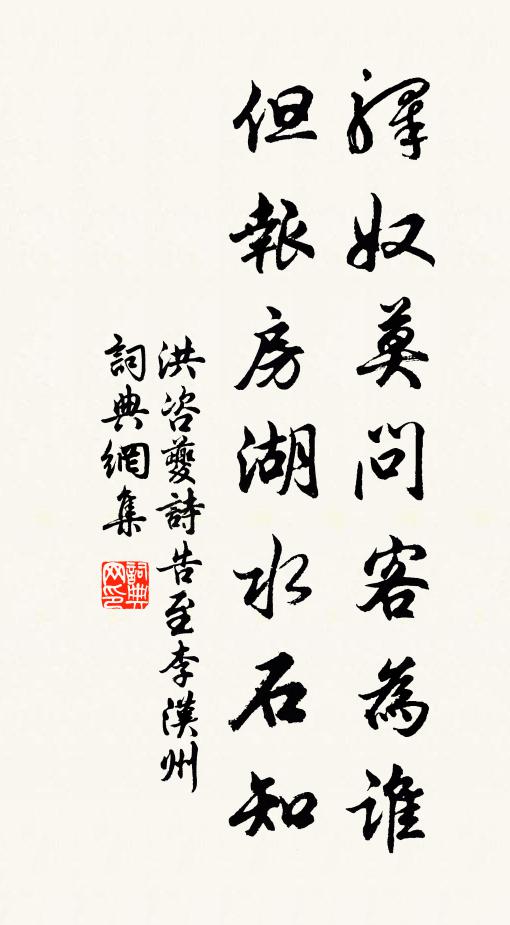 驛奴莫問客為誰
但報房湖水石知
洪咨夔詩告至李漢州
詞典網集
詞典网印